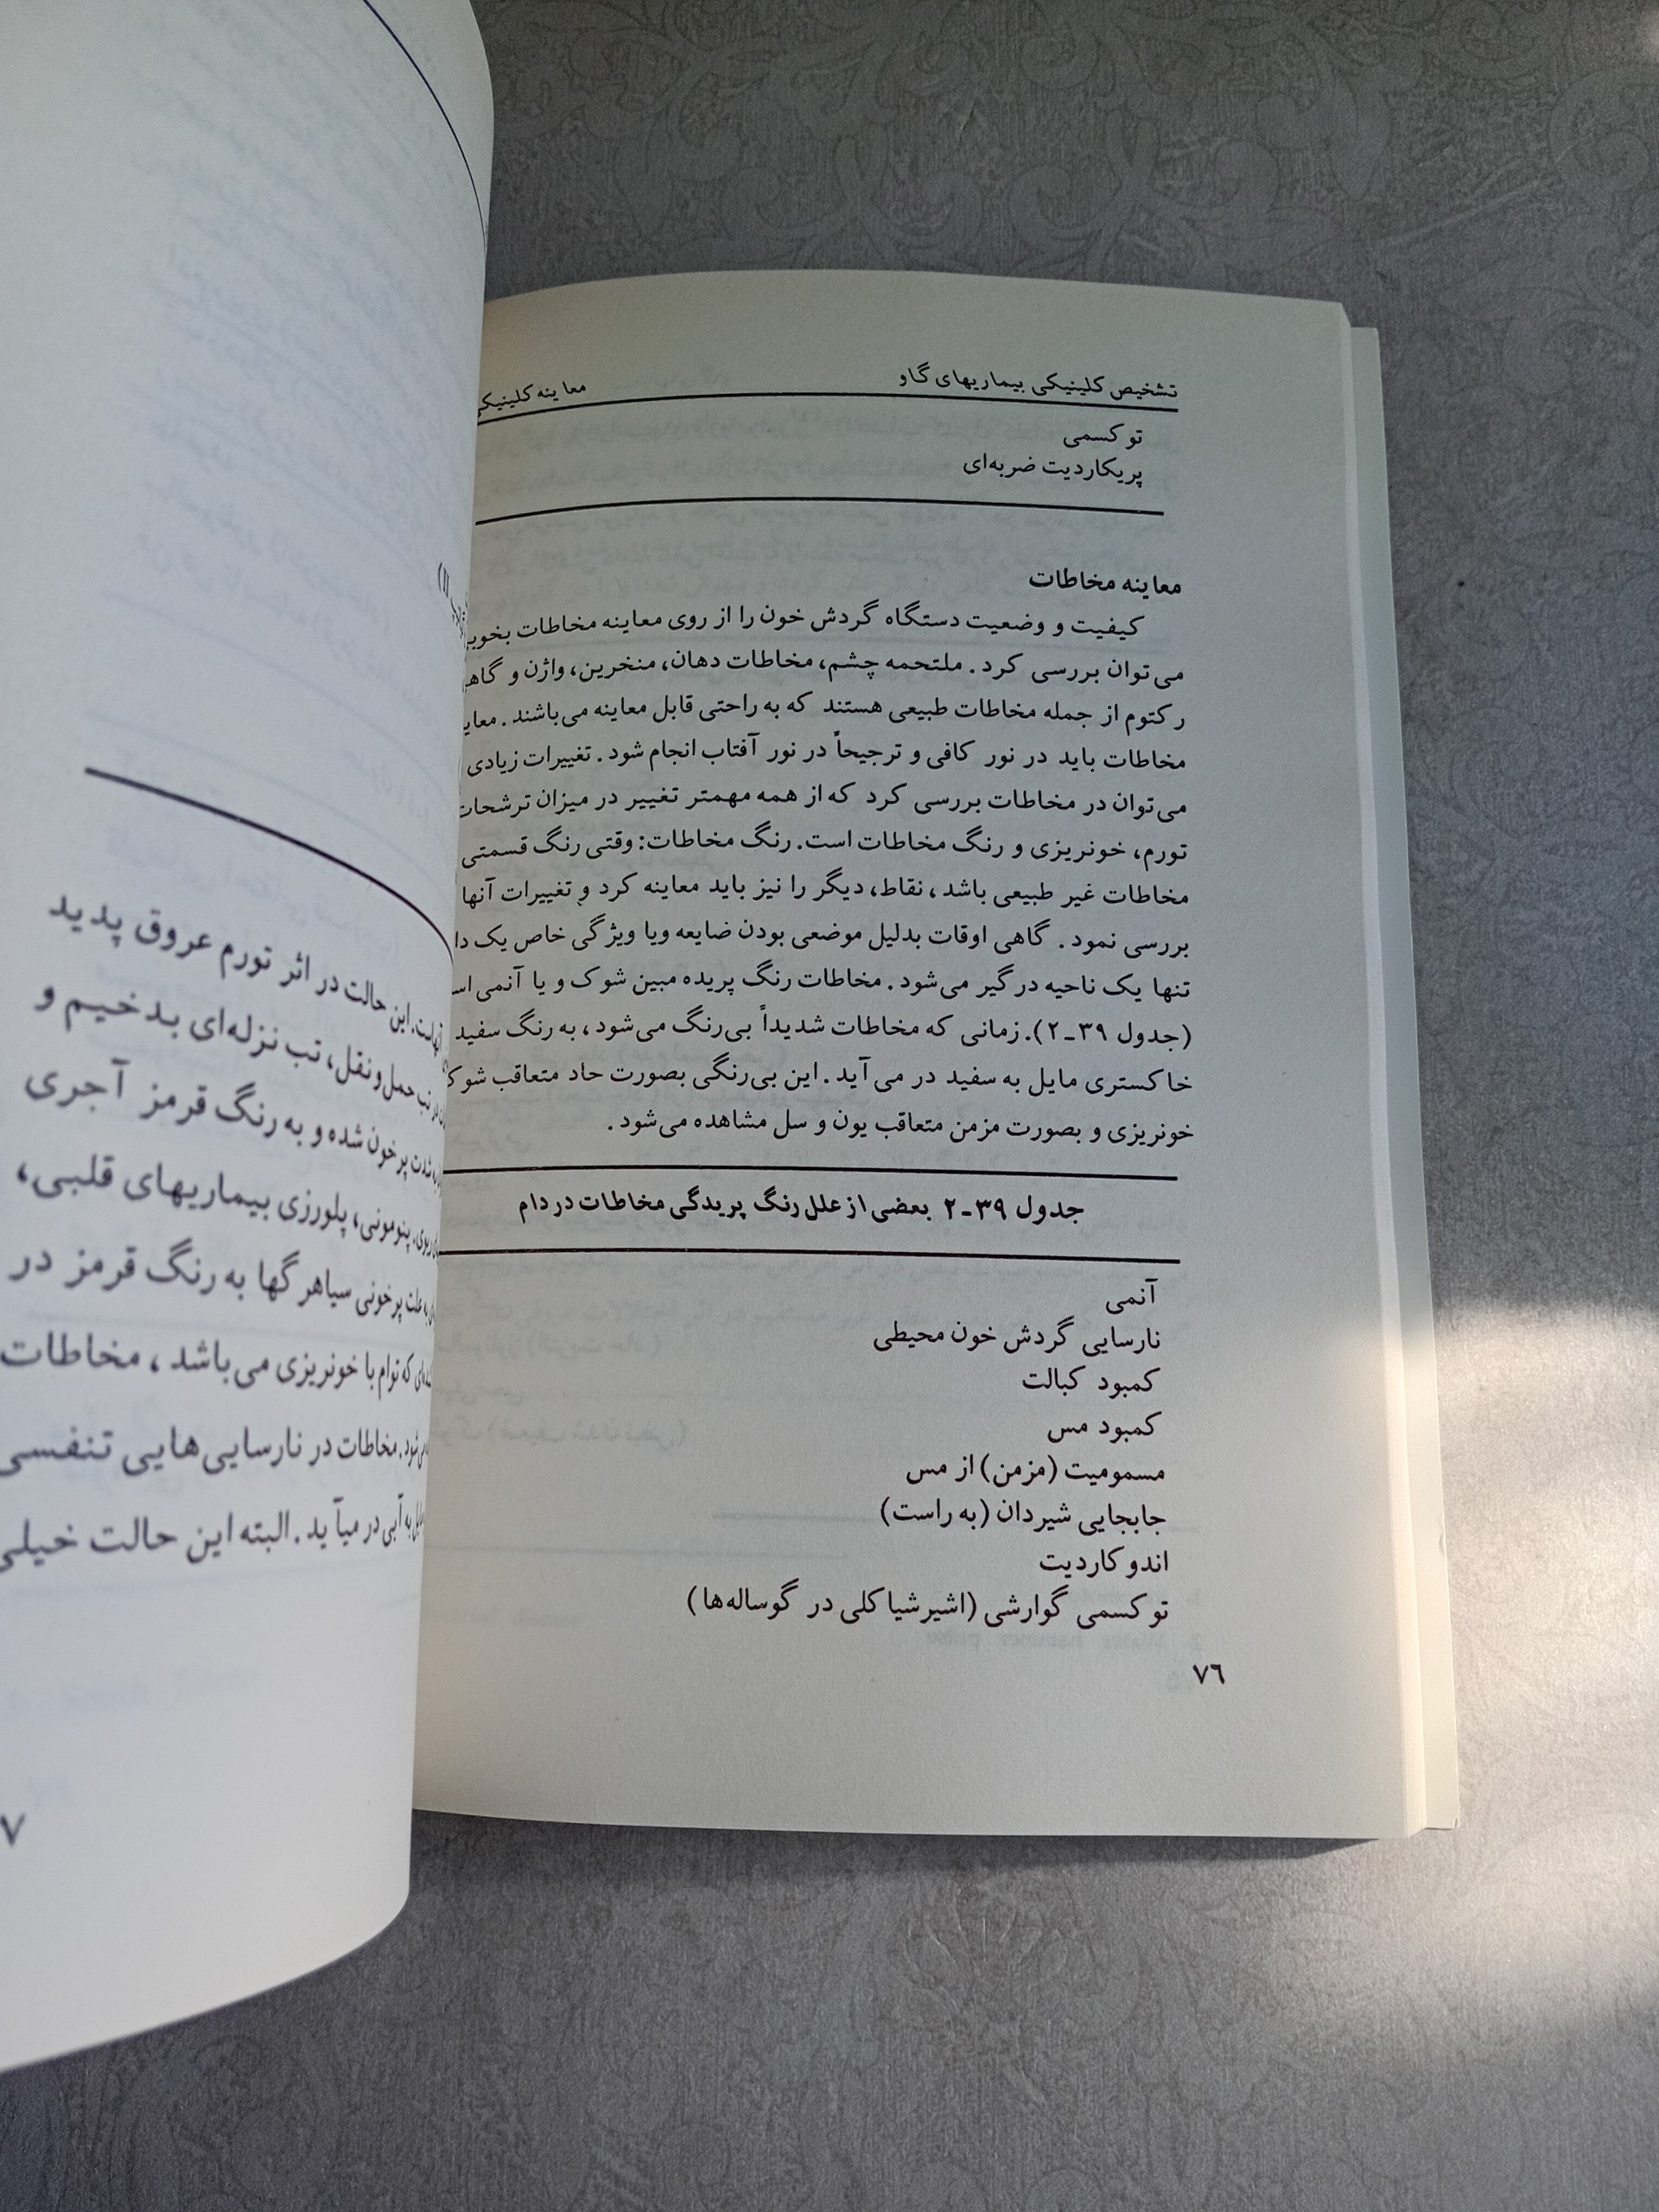 تشخیص کلینیکی بیماریهای گاو
معاینه کلینیکی
توکسمی
پریکاردیت ضربه‌ای
معاینه مخاطات
کیفیت و وضعیت دستگاه گردش خون را از روی معاینه مخاطات
می‌توان بررسی کرد. ملتحمه چشم، مخاطات دهان، منخرین، واژن و
رکتوم از جمله مخاطات طبیعی هستند که به راحتی قابل معاینه می‌باشند.
مخاطات باید در نور کافی و ترجیحاً در نور آفتاب انجام شود. تغییرات زیادی
می‌توان در مخاطات بررسی کرد که از همه مهمتر تغییر در میزان ترشحات
تورم، خونریزی و رنگ مخاطات است. رنگ مخاطات: وقتی رنگ قسمتی
مخاطات غیر طبیعی باشد، نقاط، دیگر را نیز باید معاینه کرد و تغییرات آنها
بررسی نمود. گاهی اوقات بدلیل موضعی بودن ضایعه ویا ویژگی خاص یک
تنها یک ناحیه درگیر می‌شود. مخاطات رنگ پریده مبین شوک و یا آنمی
(جدول ۳۹-۲). زمانی که مخاطات شدیداً بی‌رنگ می‌شود، به رنگ سفید
خاکستری مایل به سفید در می‌آید. این بی‌رنگی بصورت حاد متعاقب شوک
خونریزی و بصورت مزمن متعاقب یون و سل مشاهده می‌شود.
جدول ۳۹-۲ بعضی از علل رنگ پریدگی مخاطات در دام
آنمی
نارسایی گردش خون محیطی
کمبود کبالت
کمبود مس
مسمومیت (مزمن) از مس
جابجایی شیردان (به راست)
اندوکاردیت
توکسمی گوارشی (اشیرشیاکلی در گوساله‌ها)
۷۶
این حالت در اثر تورم عروق پدید
تب حمل و نقل، تب نزله‌ای بدخیم و
پر خون شده و به رنگ قرمز آجری
پنومونی، پلورزی بیماریهای قلبی،
به علت پرخونی سیاهرگها به رنگ قرمز در
که توام با خونریزی می‌باشد، مخاطات
مخاطات در نارسایی‌هایی تنفسی
به آبی در میآید. البته این حالت خیلی
۷